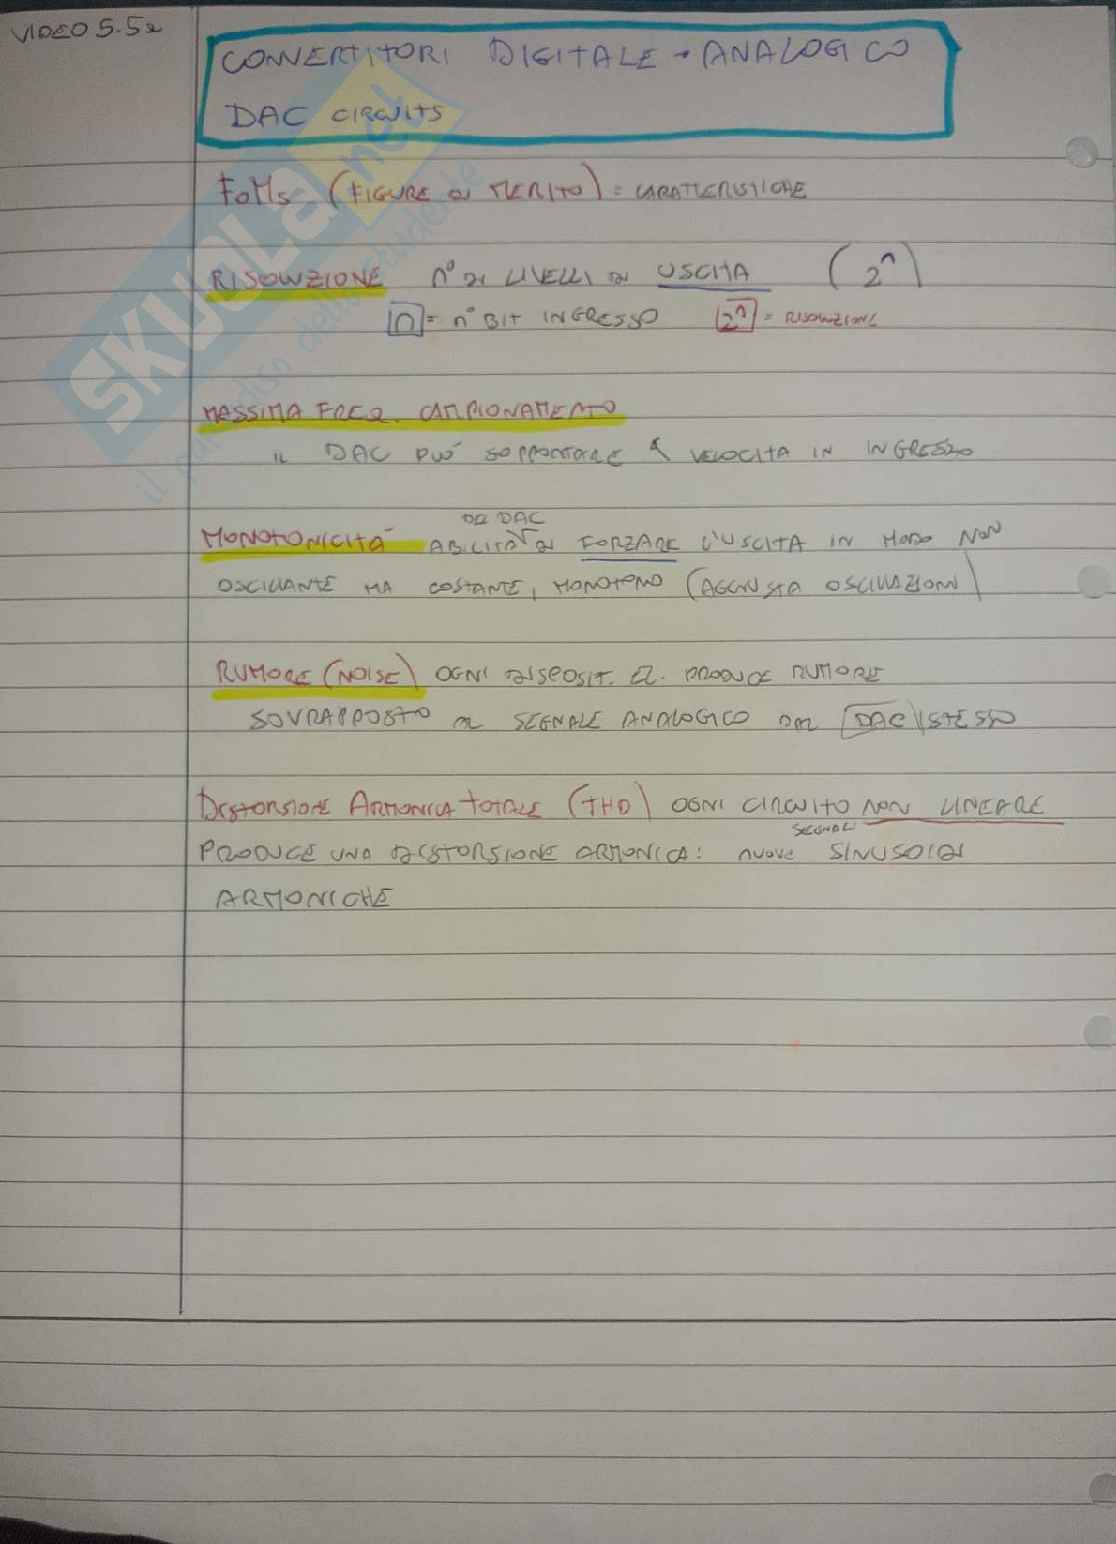 VIDEO 5.5a
CONVERTITORI DIGITALE-ANALOGICO
DAC CIRCUITS
FoMs (FIGURE DI MERITO) = CARATTERISTICHE
RISOLUZIONE n° DI LIVELLI DI USCITA (2^n)
n = n° BIT INGRESSO 2^n = RISOLUZIONE
MASSIMA FREQ. CAMPIONAMENTO
IL DAC PUÒ SOPPORTARE VELOCITA IN INGRESSO
DEL DAC
MONOTONICITÀ ABILITÀ DI FORZARE L'USCITA IN MODO NON
OSCILLANTE MA COSTANTE, MONOTONO (AGGIUSTA OSCILLAZIONI)
RUMORE (NOISE) OGNI DISPOSIT. EL. PRODUCE RUMORE
SOVRAPPOSTO AL SEGNALE ANALOGICO DAL DAC STESSO
DISTORSIONE ARMONICA TOTALE (THD) OGNI CIRCUITO NON LINEARE
SEGNALI
PRODUCE UNA DISTORSIONE ARMONICA: nuove SINUSOIDI
ARMONICHE
SKUOLA.net
il paradiso dello studente